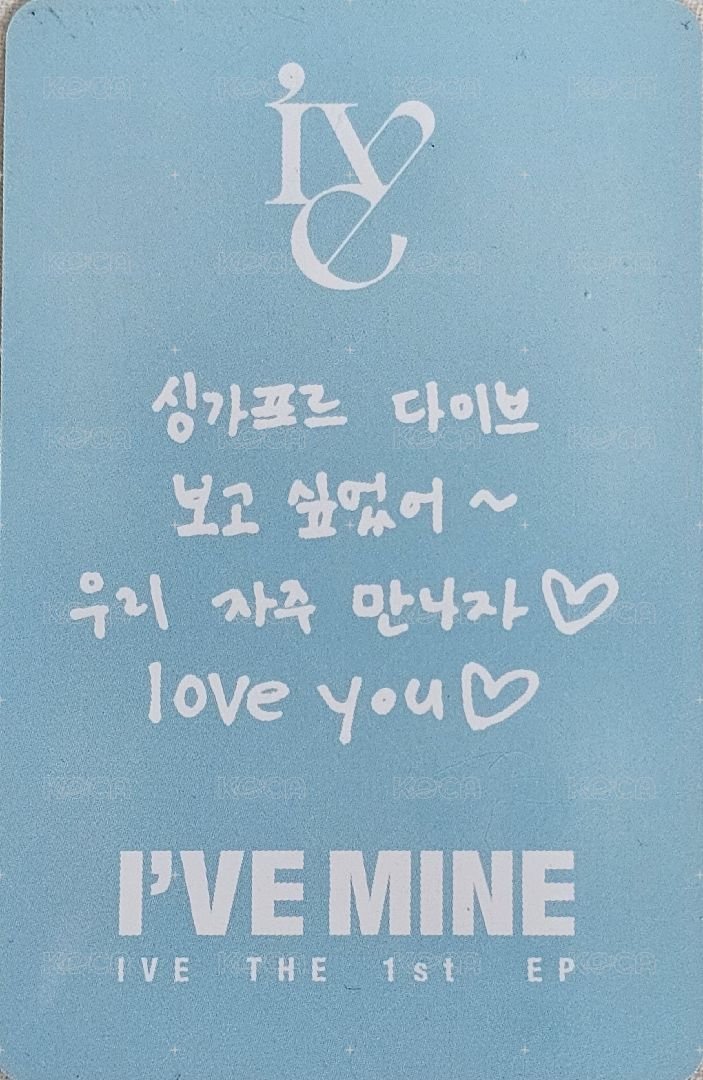 IVE
싱가프르 다이브
보고 싶었어 ~
우리 자주 만나자♡
love you♡
I'VE MINE
IVE THE 1st EP
KOCA